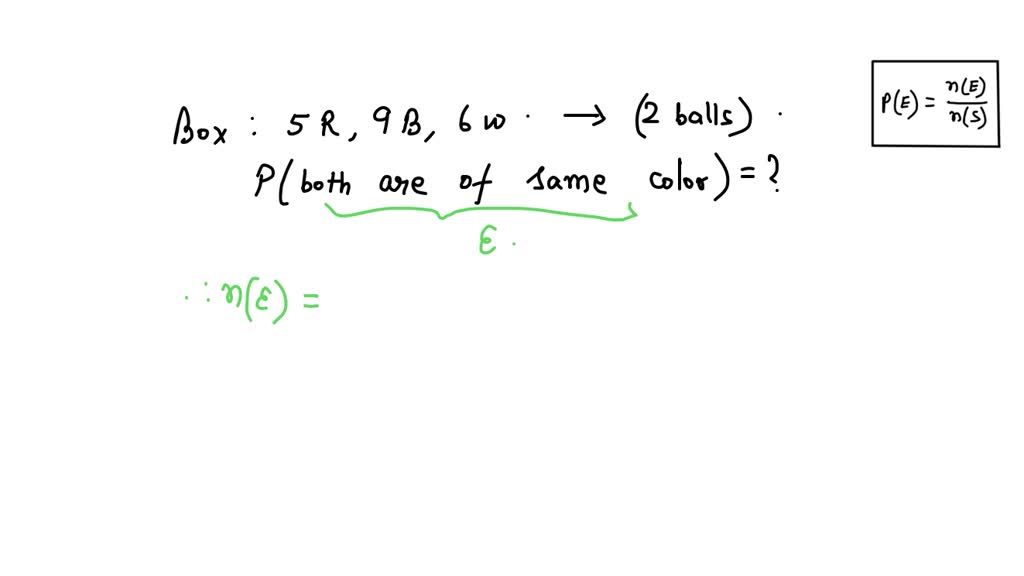 Box : 5 R, 9 B, 6 W. → (2 balls).
P(both are of same color) = ?
E.
∴ n(E) =
P(E) = n(E)/n(S)